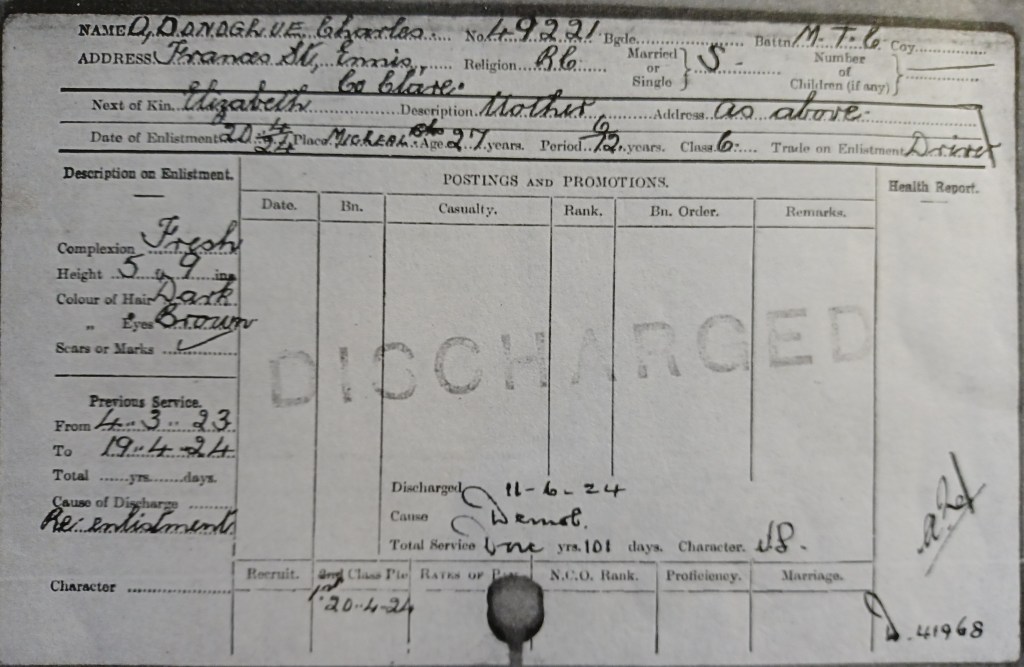 NAME O'DONOGHUE Charles No. 49221 Bgde. Battn M.T.C Coy.
ADDRESS Frances St, Ennis, Religion R.C. Married or Single } S. Number of Children (if any) }
Co Clare.
Next of Kin. Elizabeth Description Mother Address as above.
Date of Enlistment 20/4/24 Place Age 27 years. Period 6/12 years. Class 6 Trade on Enlistment Driver
Description on Enlistment.
POSTINGS AND PROMOTIONS.
Health Report.
Date. Bn. Casualty. Rank. Bn. Order. Remarks.
Complexion Fresh
Height 5 ft 9 ins
Colour of Hair Dark
" Eyes Brown
Scars or Marks
DISCHARGED
Previous Service.
From 4.3.23
To 19.4.24
Total ......yrs.......days.
Cause of Discharge
Re-enlistment
Discharged 11-6-24
Cause Demob.
Total Service One yrs. 101 days. Character.
Character
Recruit. 2nd Class Pte RATES OF PAY N.C.O. Rank. Proficiency. Marriage.
20-4-24
41968